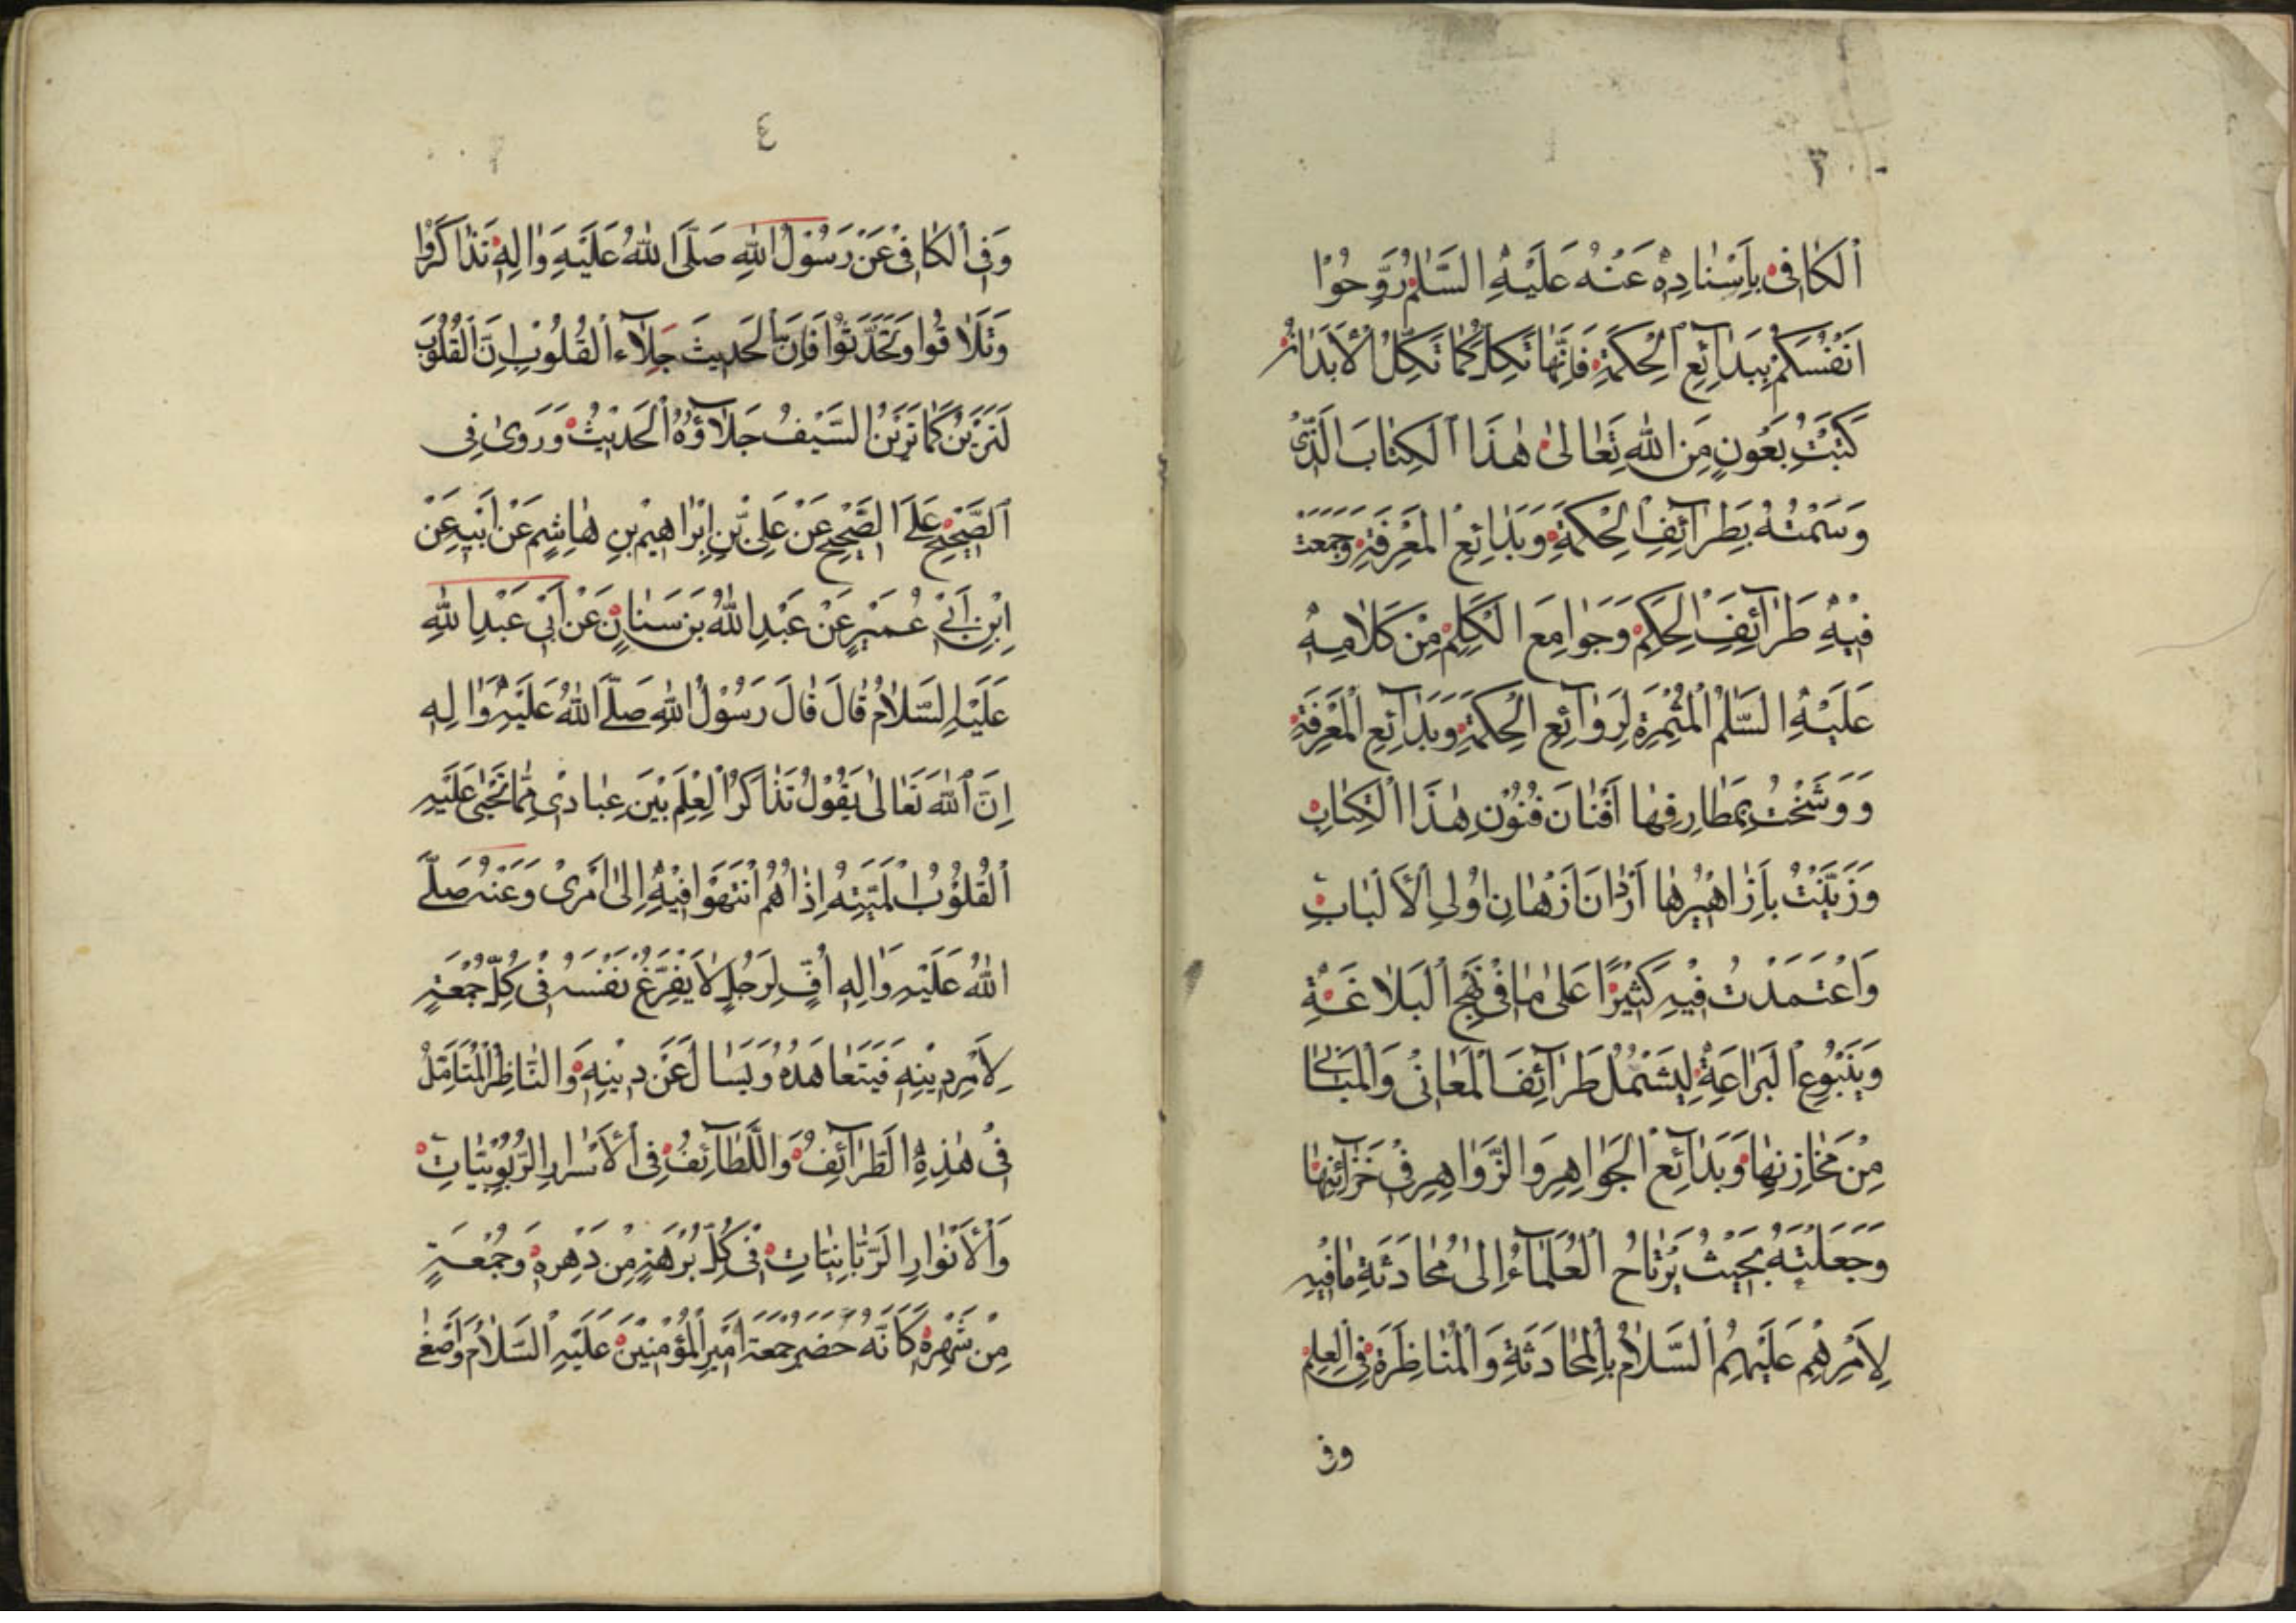 ٣
اَلْكَافِىْ بِاَسْنَادِهٖ عَنْهُ عَلَيْهِ السَّلٰمُ رَوِّحُوْا
اَنْفُسَكُمْ بِبَدَآئِعِ الْحِكْمَةِ فَاِنَّهَا تَكِلُّ كَمَا تَكِلُّ الْاَبْدَانُ
كَتَبْتُ بِعَوْنٍ مِنَ اللّٰهِ تَعَالٰى هٰذَا الْكِتَابَ الَّذِىْ
وَسَمْتُهُ بِطَرَآئِفِ الْحِكْمَةِ وَبَدَائِعِ الْمَعْرِفَةِ وَجَمَعْتُ
فِيْهِ طَرَآئِفَ الْحِكَمِ وَجَوَامِعَ الْكَلِمِ مِنْ كَلَامِهِ
عَلَيْهِ السَّلٰمُ الْمُثْمِرَةِ لِرَوَآئِعِ الْحِكْمَةِ وَبَدَآئِعِ الْمَعْرِفَةِ
وَوَشَّحْتُ بِمَطَارِفِهَا اَفْنَانَ فُنُوْنِ هٰذَا الْكِتَابِ
وَزَيَّنْتُ بِاَزَاهِيْرِهَا اَرْدَانَ اَزْهَانِ اُولِى الْاَلْبَابِ
وَاعْتَمَدْتُ فِيْهِ كَثِيْرًا عَلٰى مَا فِىْ نَهْجِ الْبَلَاغَةِ
وَيَنْبُوْعِ الْبَرَاعَةِ لِيَشْتَمِلَ طَرَآئِفَ الْمَعَانِىْ وَالْمَبَانِىْ
مِنْ مَخَازِنِهَا وَبَدَآئِعَ الْجَوَاهِرِ وَالزَّوَاهِرِ فِىْ خَزَآئِنِهَا
وَجَعَلْتُهُ بِحَيْثُ يَرْتَاحُ الْعُلَمَآءُ اِلٰى مُحَادَثَةِ مَافِيْهِ
لِاَمْرِهِمْ عَلَيْهِمُ السَّلَامُ بِالْمُحَادَثَةِ وَالْمُنَاظَرَةِ فِى الْعِلْمِ
وفى
٤
وَفِى الْكَافِىْ عَنْ رَسُوْلِ اللّٰهِ صَلَّى اللّٰهُ عَلَيْهِ وَاٰلِهٖ تَذَاكَرُوْا
وَتَلَاقُوْا وَتَحَدَّثُوْا فَاِنَّ الْحَدِيثَ جَلَآء الْقُلُوْبِ اِنَّ الْقُلُوْبَ
لَتَرِيْنُ كَمَا تَرِيْنُ السَّيْفُ جَلَآؤُهُ الْحَدِيْثُ وَرَوٰى فِى
الصَّحِيْحِ عَلَى الصَّحِيْحِ عَنْ عَلِىِّ بْنِ اِبْرَاهِيْمَ بْنِ هَاشِمٍ عَنْ اَبِيْهِ عَنْ
اِبْنِ اَبِىْ عُمَيْرٍ عَنْ عَبْدِ اللّٰهِ بْنِ سَنَانٍ عَنْ اَبِىْ عَبْدِ اللّٰهِ
عَلَيْهِ السَّلَامُ قَالَ قَالَ رَسُوْلُ اللّٰهِ صَلَّى اللّٰهُ عَلَيْهِ وَاٰلِهِ
اِنَّ اللّٰهَ تَعَالٰى يَقُوْلُ تَذَاكُرُ الْعِلْمِ بَيْنَ عِبَادِىْ مِمَّا تَحْيٰى عَلَيْهِ
الْقُلُوْبُ الْمَيِّتَةُ اِذَا هُمْ انْتَهَوْا فِيْهِ اِلٰى اَمْرِىْ وَعَنْهُ صَلَّى
اللّٰهُ عَلَيْهِ وَاٰلِهِ اُفٍّ لِرَجُلٍ لَا يُفَرِّغُ نَفْسَهُ فِىْ كُلِّ جُمْعَةٍ
لِاَمْرِ دِيْنِهِ فَيَتَعَاهَدُهُ وَيَسْاَلُ عَنْ دِيْنِهٖ وَالنَّاظِرُ الْمُتَاَمِّلُ
فِىْ هٰذِهِ الطَّرَآئِفِ وَاللَّطَآئِفِ فِى الْاَسْرَارِ الرُّبُوْبِيَّاتِ
وَالْاَنْوَارِ الرَّبَّانِيَّاتِ فِىْ كُلِّ بُرْهَةٍ مِنْ دَهْرِهٖ وَجُمْعَةٍ
مِنْ شَهْرِهٖ كَاَنَّهُ حَضَرَ جُمْعَةَ اَمِيْرِ الْمُؤْمِنِيْنَ عَلَيْهِ السَّلَامُ وَاَصْغٰى